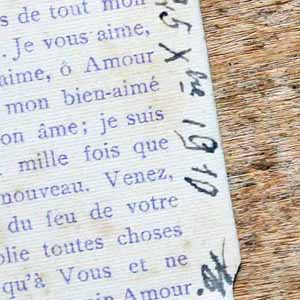 s de tout mon
. Je vous aime,
aime, ô Amour
mon bien-aimé
on âme; je suis
mille fois que
nouveau. Venez,
du feu de votre
olie toutes choses
qu'à Vous et ne
Amour
25 Xbre 1910